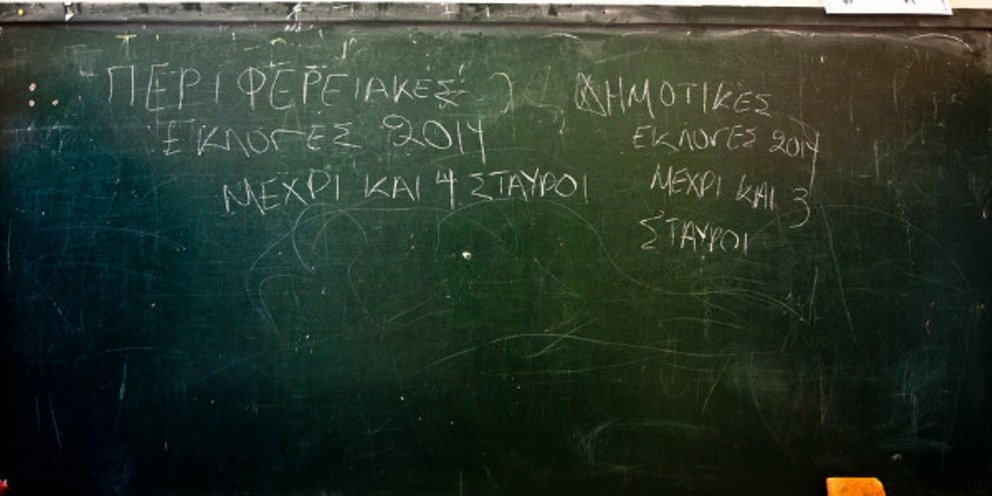 ΠΕΡΙΦΕΡΕΙΑΚΕΣ
ΕΚΛΟΓΕΣ 2014
ΜΕΧΡΙ ΚΑΙ 4 ΣΤΑΥΡΟΙ
ΔΗΜΟΤΙΚΕΣ
ΕΚΛΟΓΕΣ 2014
ΜΕΧΡΙ ΚΑΙ 3
ΣΤΑΥΡΟΙ